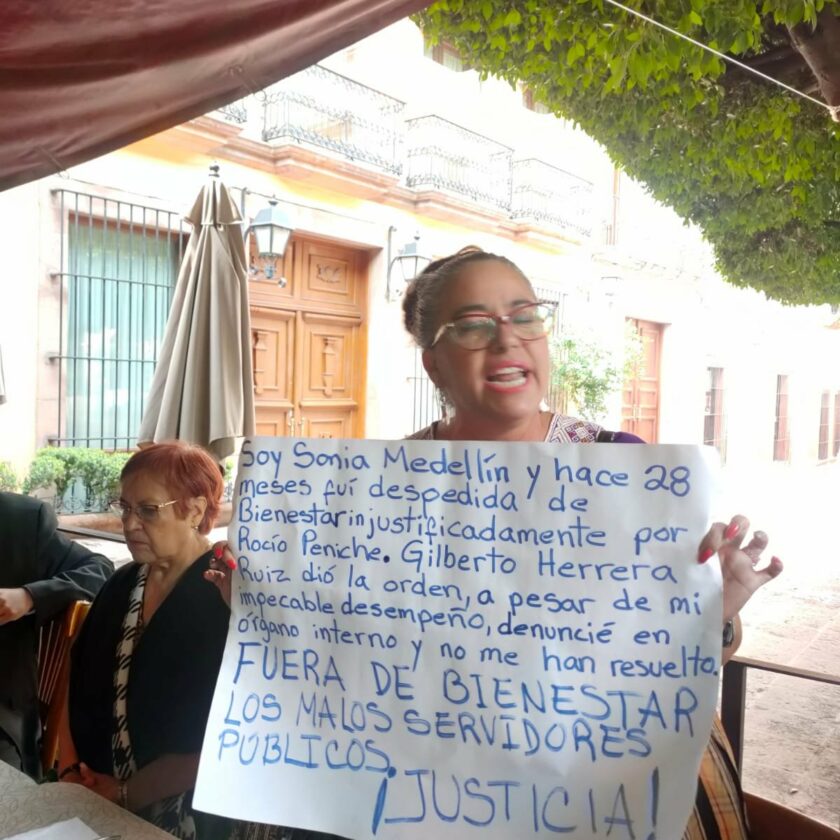 Soy Sonia Medellín y hace 28
meses fuí despedida de
Bienestar injustificadamente por
Rocío Peniche. Gilberto Herrera
Ruiz dió la orden, a pesar de mi
impecable desempeño, denuncié en
órgano interno y no me han resuelto.
FUERA DE BIENESTAR
LOS MALOS SERVIDORES
PÚBLICOS.
¡JUSTICIA!